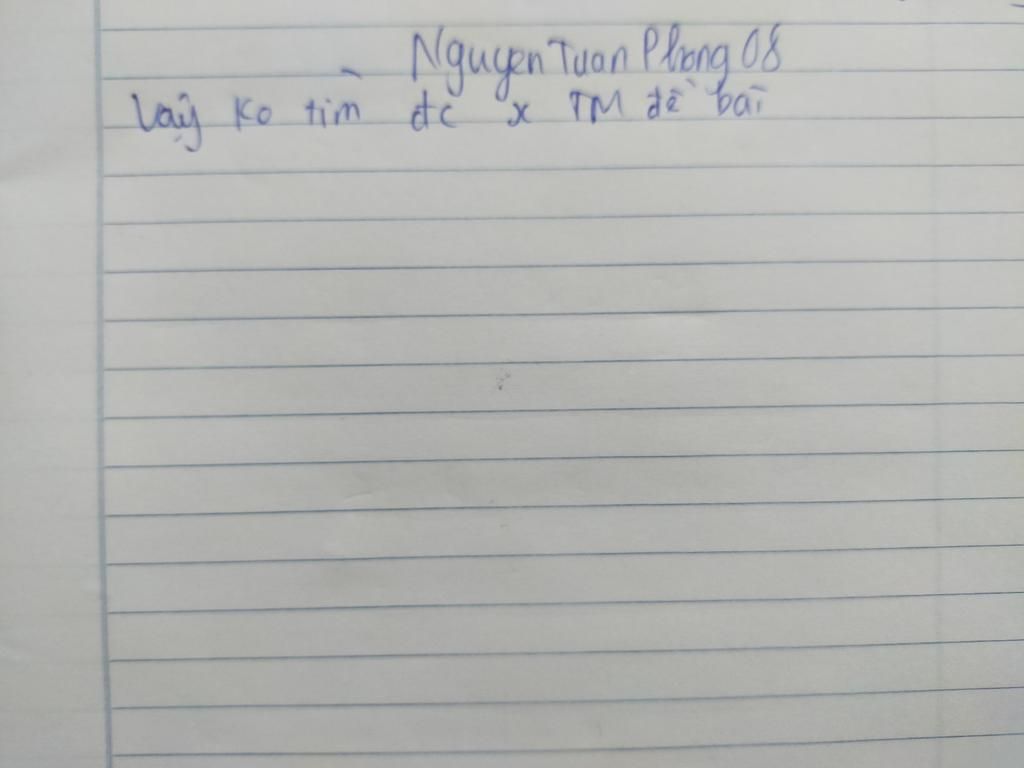 Nguyen Tuan Phong 08
Vậy ko tìm đc x TM đề bài